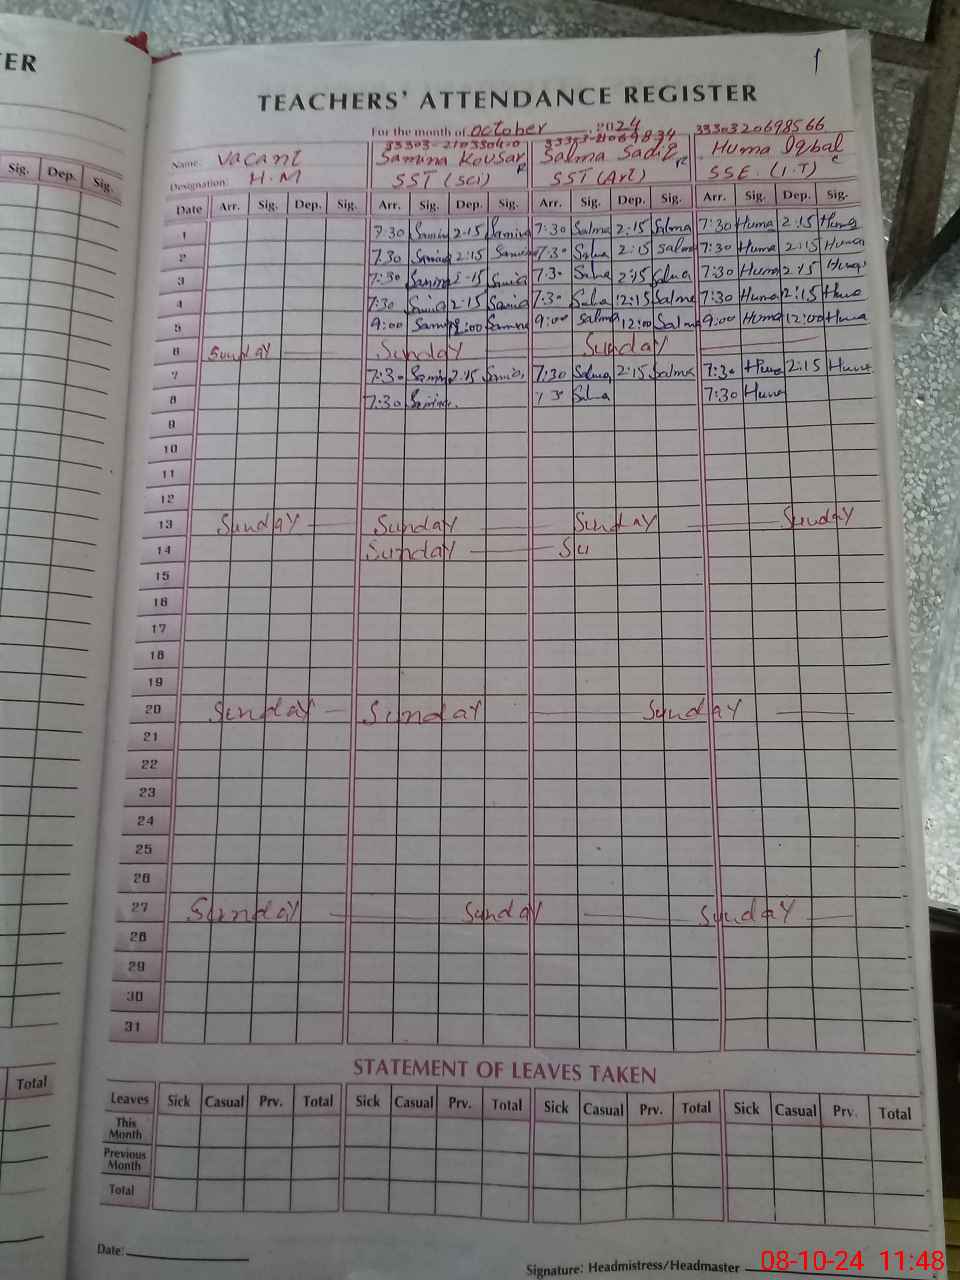 ER
TEACHERS' ATTENDANCE REGISTER
For the month of October 2024
33303-2103304-0 3330320698566
Name: Vacant Samina Kousar Salma Sadiq Huma Iqbal
Designation: H.M SST (Sci) SST (Art) SSE. (I.T)
Sig. Dep. Sig.
Date Arr. Sig. Dep. Sig. Arr. Sig. Dep. Sig. Arr. Sig. Dep. Sig. Arr. Sig. Dep. Sig.
1 7:30 Samina 2:15 Samina 7:30 Salma 2:15 Salma 7:30 Huma 2:15 Huma
2 7:30 Samina 2:15 Samina 7:30 Salma 2:15 Salma 7:30 Huma 2:15 Huma
3 7:30 Samina 2:15 Samina 7:30 Salma 2:15 Salma 7:30 Huma 2:15 Huma
4 7:30 Samina 2:15 Samina 7:30 Salma 2:15 Salma 7:30 Huma 2:15 Huma
5 9:00 Samina 12:00 Samina 9:00 Salma 12:00 Salma 9:00 Huma 12:00 Huma
6 Sunday Sunday Sunday
7 7:30 Samina 2:15 Samina 7:30 Salma 2:15 Salma 7:30 Huma 2:15 Huma
8 7:30 Samina 7:30 Salma 7:30 Huma
9
10
11
12
13 Sunday Sunday Sunday Sunday
14 Sunday Su
15
16
17
18
19
20 Sunday Sunday Sunday
21
22
23
24
25
26
27 Sunday Sunday Sunday
28
29
30
31
STATEMENT OF LEAVES TAKEN
Total
Leaves Sick Casual Prv. Total Sick Casual Prv. Total Sick Casual Prv. Total Sick Casual Prv. Total
This Month
Previous Month
Total
Date:
Signature: Headmistress/Headmaster
08-10-24 11:48